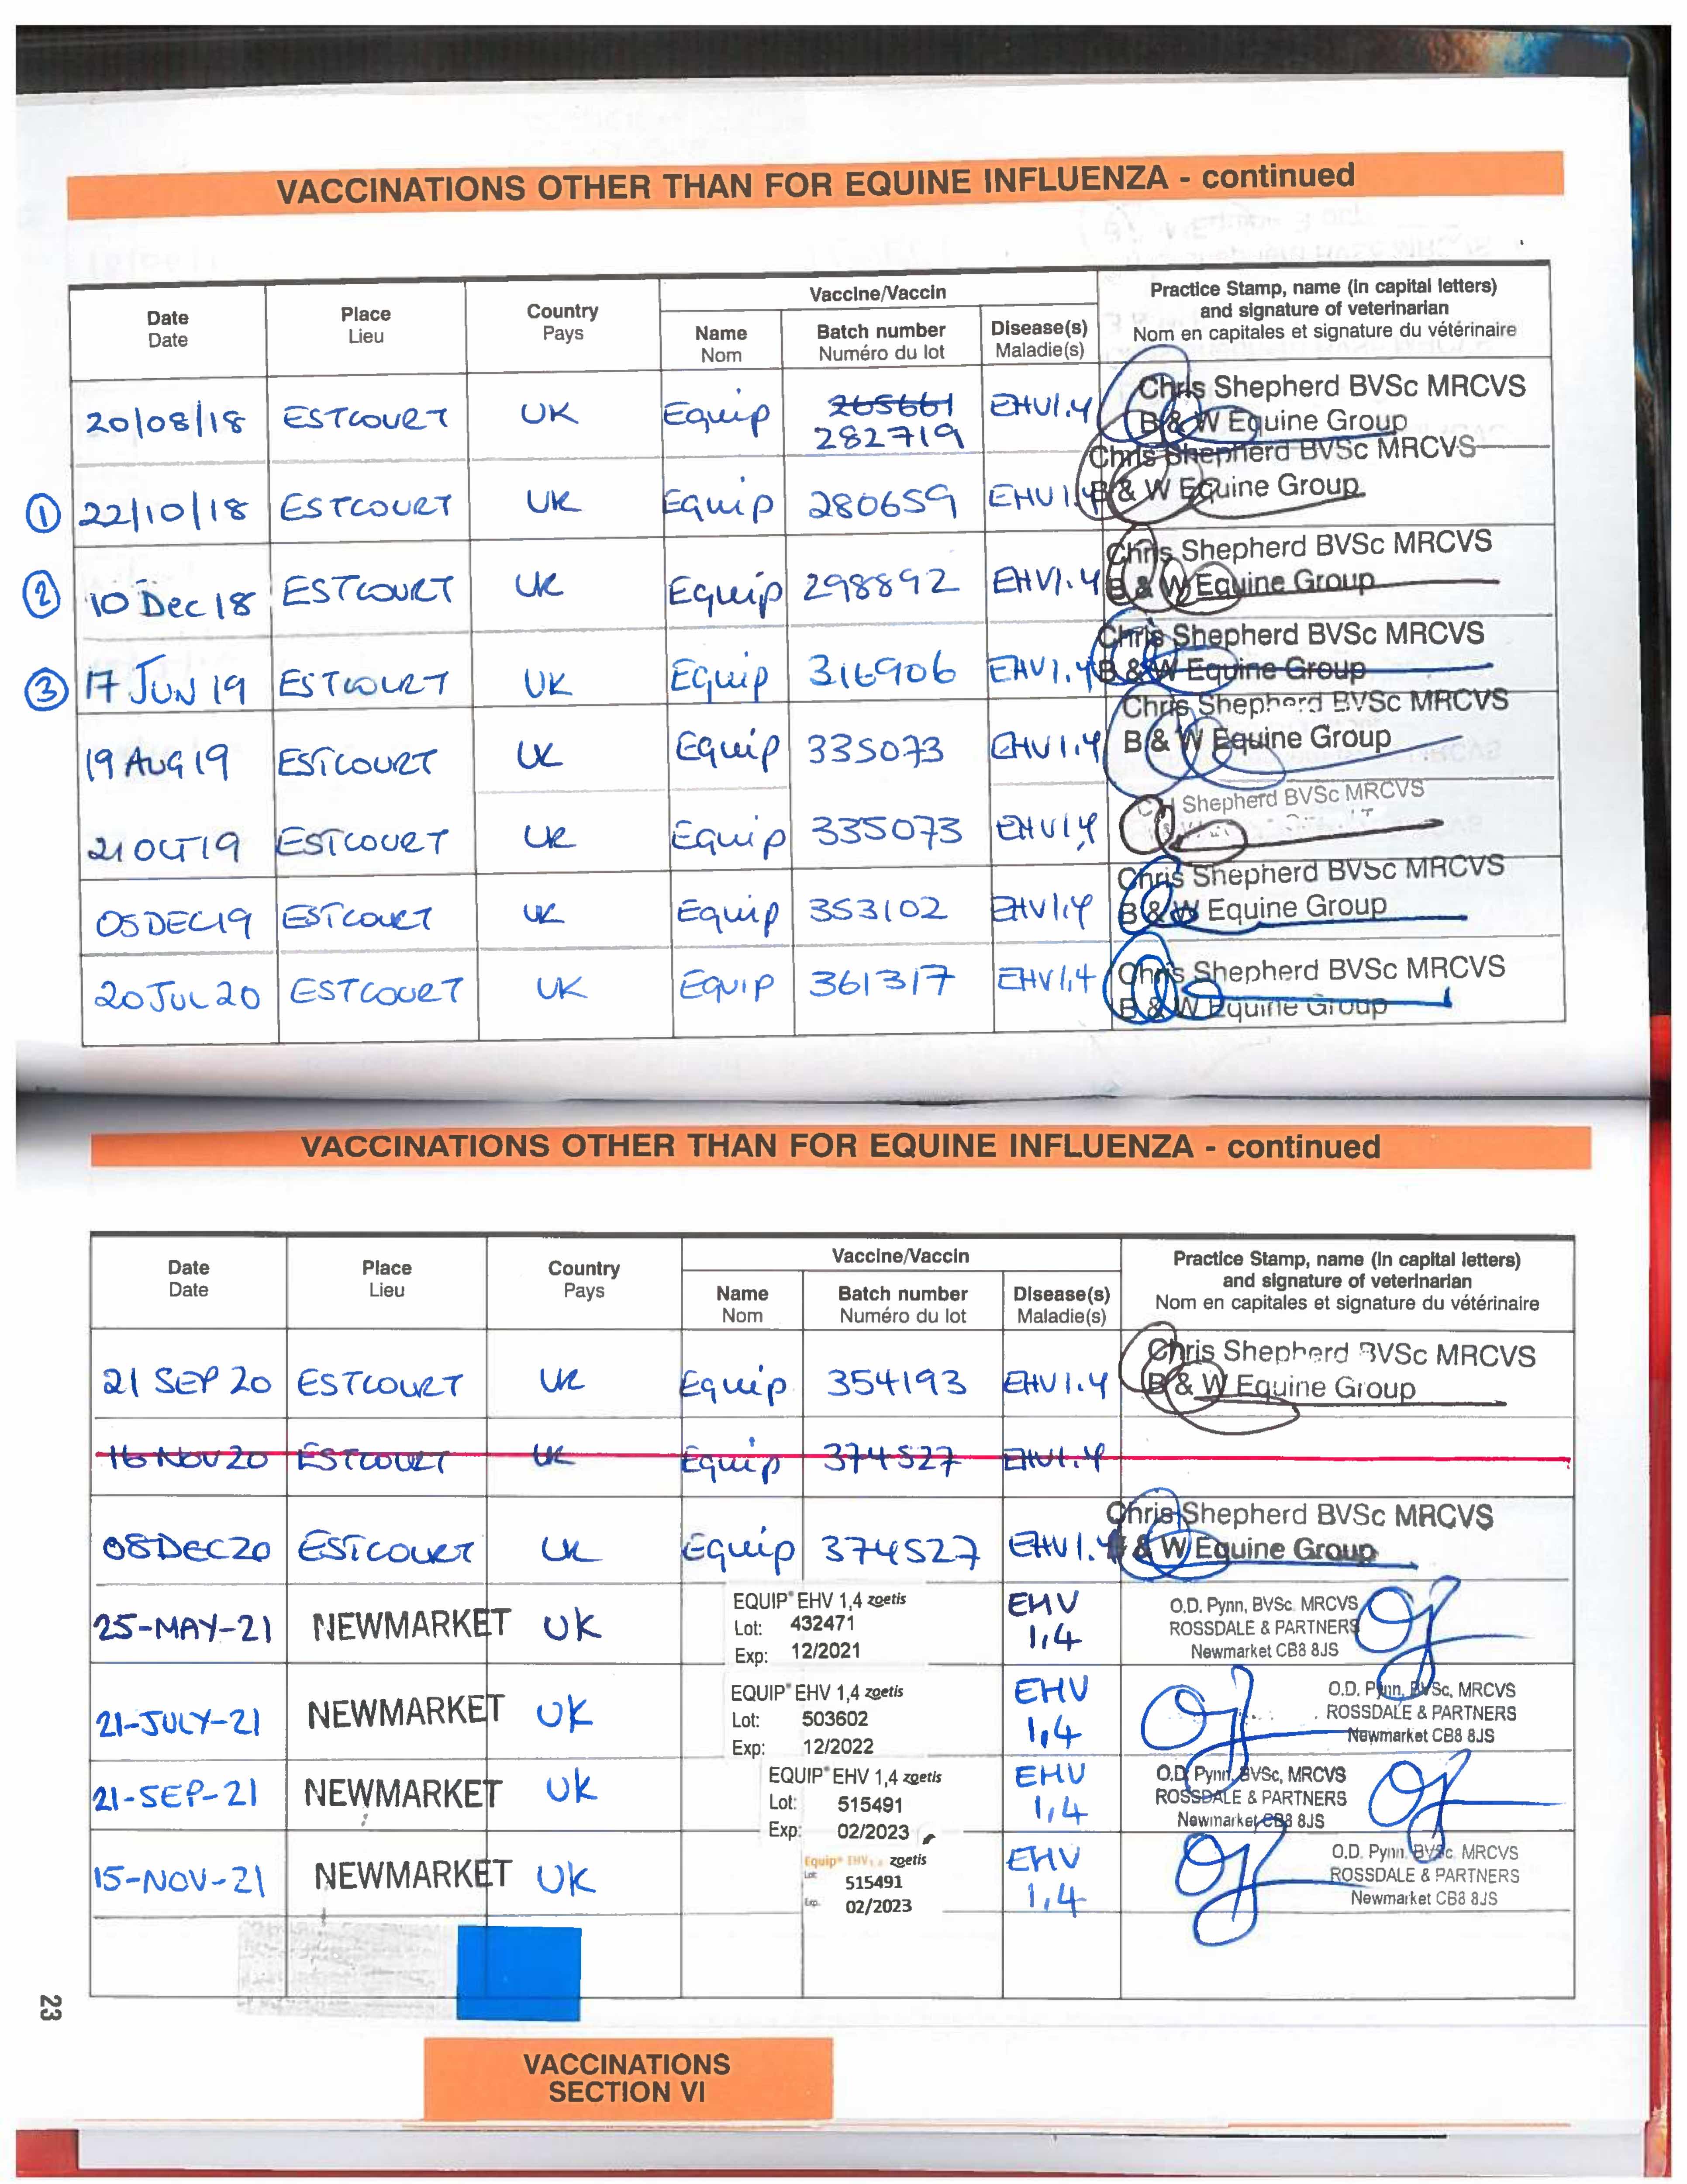 VACCINATIONS OTHER THAN FOR EQUINE INFLUENZA - continued
Date Date
Place Lieu
Country Pays
Vaccine/Vaccin
Name Nom
Batch number Numéro du lot
Disease(s) Maladie(s)
Practice Stamp, name (in capital letters)
and signature of veterinarian
Nom en capitales et signature du vétérinaire
20/08/18 ESTCOURT UK Equip 265661 282719 EHV1.4 Chris Shepherd BVSc MRCVS
B & W Equine Group
① 22/10/18 ESTCOURT UK Equip 280659 EHV1.4 Chris Shepherd BVSc MRCVS
B & W Equine Group
② 10 Dec 18 ESTCOURT UK Equip 298892 EHV1.4 Chris Shepherd BVSc MRCVS
B & W Equine Group
③ 17 JUN 19 ESTCOURT UK Equip 316906 EHV1.4 Chris Shepherd BVSc MRCVS
B & W Equine Group
19 AUG 19 ESTCOURT UK Equip 335073 EHV1.4 Chris Shepherd BVSc MRCVS
B & W Equine Group
21 OCT 19 ESTCOURT UK Equip 335073 EHV1,4 Shepherd BVSc MRCVS
05 DEC 19 ESTCOURT UK Equip 353102 EHV1,4 Chris Shepherd BVSc MRCVS
B & W Equine Group
20 JUL 20 ESTCOURT UK Equip 361317 EHV1,4 Chris Shepherd BVSc MRCVS
B & W Equine Group
VACCINATIONS OTHER THAN FOR EQUINE INFLUENZA - continued
Date Date
Place Lieu
Country Pays
Vaccine/Vaccin
Name Nom
Batch number Numéro du lot
Disease(s) Maladie(s)
Practice Stamp, name (in capital letters)
and signature of veterinarian
Nom en capitales et signature du vétérinaire
21 SEP 20 ESTCOURT UK Equip 354193 EHV1.4 Chris Shepherd BVSc MRCVS
B & W Equine Group
16 NOV 20 ESTCOURT UK Equip 374527 EHV1.4
08 DEC 20 ESTCOURT UK Equip 374527 EHV1.4 Chris Shepherd BVSc MRCVS
& W Equine Group
25-MAY-21 NEWMARKET UK
EQUIP® EHV 1,4 zoetis
Lot: 432471
Exp: 12/2021
EHV
1,4
O.D. Pynn, BVSc. MRCVS
ROSSDALE & PARTNERS
Newmarket CB8 8JS
21-JULY-21 NEWMARKET UK
EQUIP® EHV 1,4 zoetis
Lot: 503602
Exp: 12/2022
EHV
1,4
O.D. Pynn, BVSc, MRCVS
ROSSDALE & PARTNERS
Newmarket CB8 8JS
21-SEP-21 NEWMARKET UK
EQUIP® EHV 1,4 zoetis
Lot: 515491
Exp: 02/2023
EHV
1,4
O.D. Pynn, BVSc, MRCVS
ROSSDALE & PARTNERS
Newmarket CB8 8JS
15-NOV-21 NEWMARKET UK
Equip® EHV 1,4 zoetis
Lot: 515491
Exp. 02/2023
EHV
1,4
O.D. Pynn, BVSc. MRCVS
ROSSDALE & PARTNERS
Newmarket CB8 8JS
23
VACCINATIONS
SECTION VI